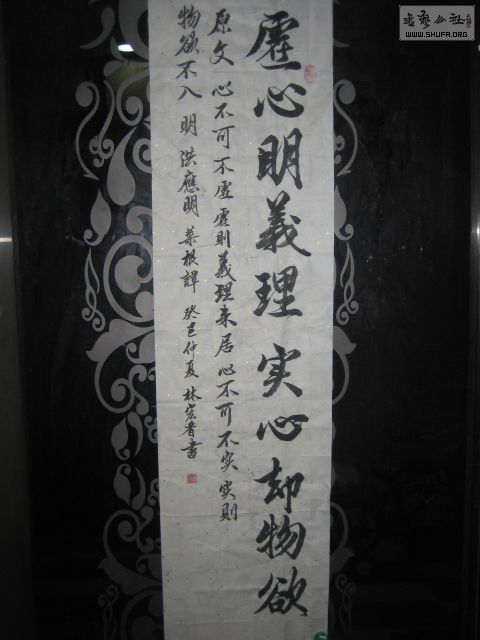 虚心明義理 实心却物欲
原文 心不可不虚 虚则義理来居 心不可不实 实则
物欲不入 明 洪應明 菜根譚 癸巳仲夏 林宏香書
书艺公社
WWW.SHUFA.ORG